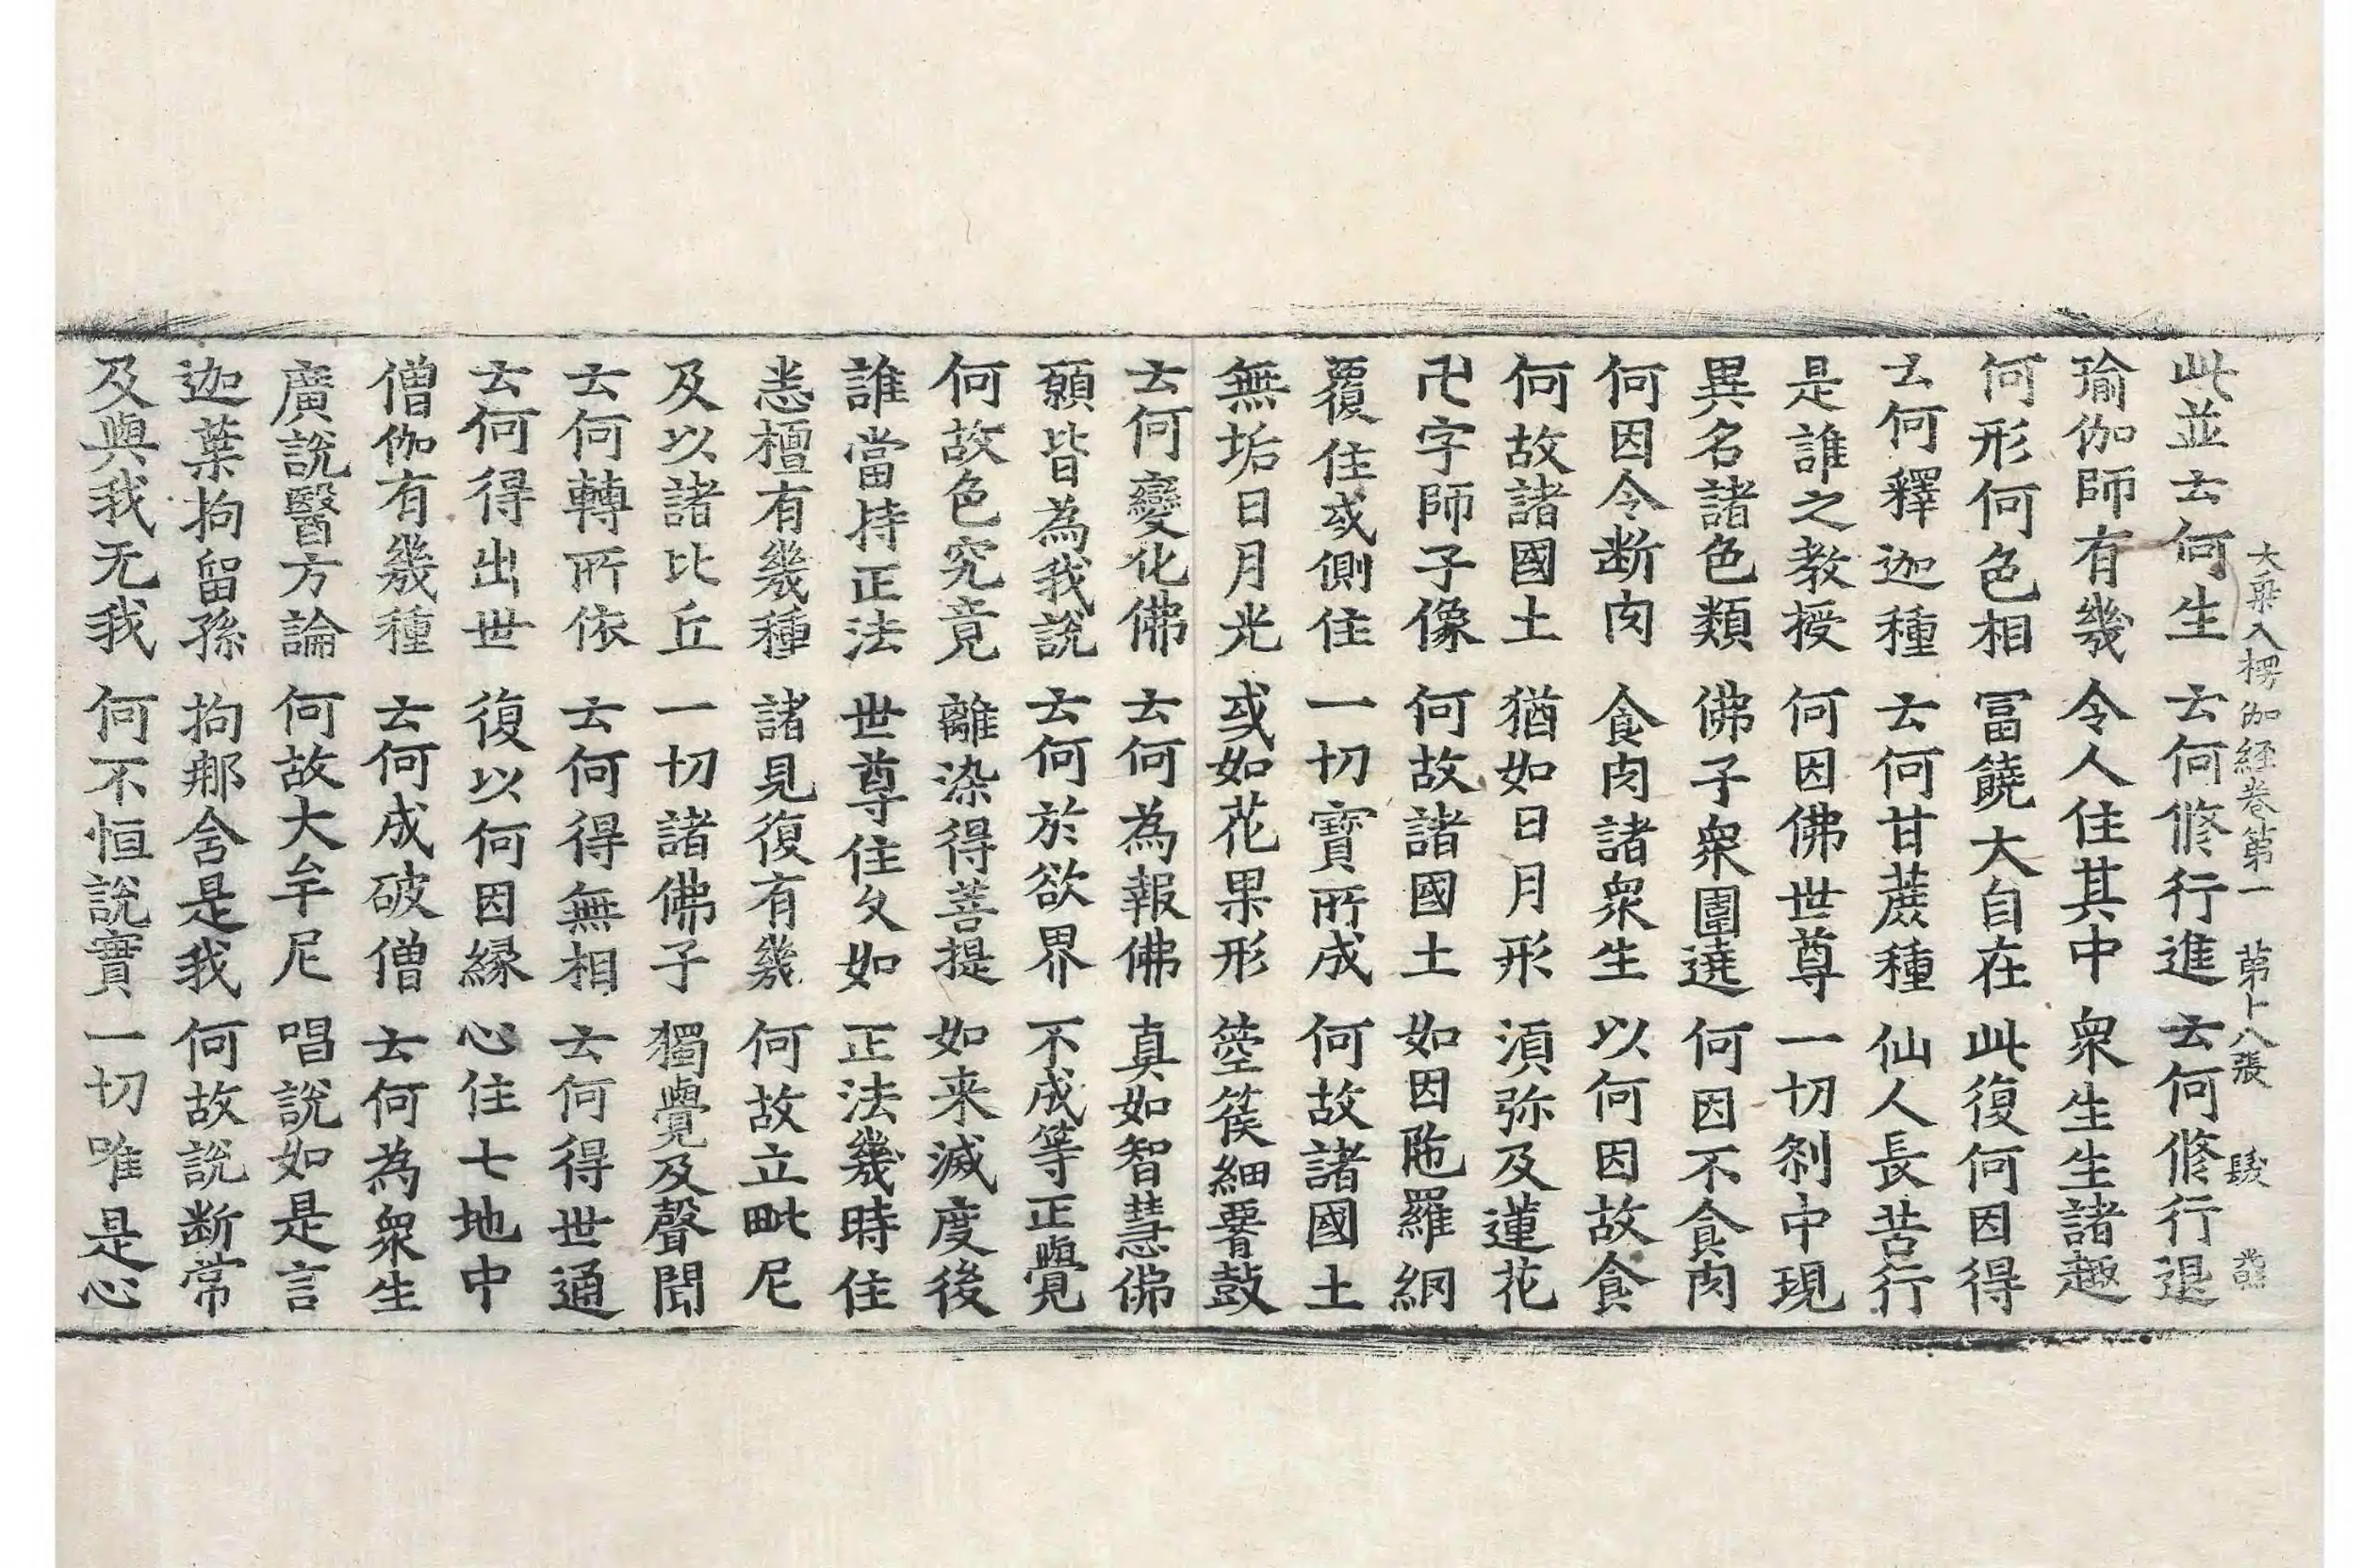 大乗入楞伽経巻第一 苐十八張
此並云何生 云何修行進 云何修行退
瑜伽師有幾 令人住其中 衆生生諸趣
何形何色相 冨饒大自在 此復何因得
云何釋迦種 云何甘蔗種 仙人長苦行
是誰之教授 何因佛世尊 一切剎中現
異名諸色類 佛子衆圍遶 何因不食肉
何因令断肉 食肉諸衆生 以何因故食
何故諸國土 猶如日月形 湏弥及蓮花
卍字師子像 何故諸國土 如因陁羅網
覆住或側住 一切寳所成 何故諸國土
無垢日月光 或如花果形 箜篌細䨉鼓
云何變化佛 云何為報佛 真如智慧佛
願皆為我說 云何於欲界 不成等正覺
何故色究竟 離染得菩提 如来滅度後
誰當持正法 世尊住久如 正法幾時住
悉檀有幾種 諸見復有幾 何故立毗尼
及以諸比丘 一切諸佛子 獨覺及聲聞
云何轉所依 云何得無相 云何得世通
云何得出世 復以何因縁 心住七地中
僧伽有幾種 云何成破僧 云何為衆生
廣說醫方論 何故大牟尼 唱說如是言
迦葉拘留孫 拘那含是我 何故說断常
及與我无我 何不恒說實 一切唯是心